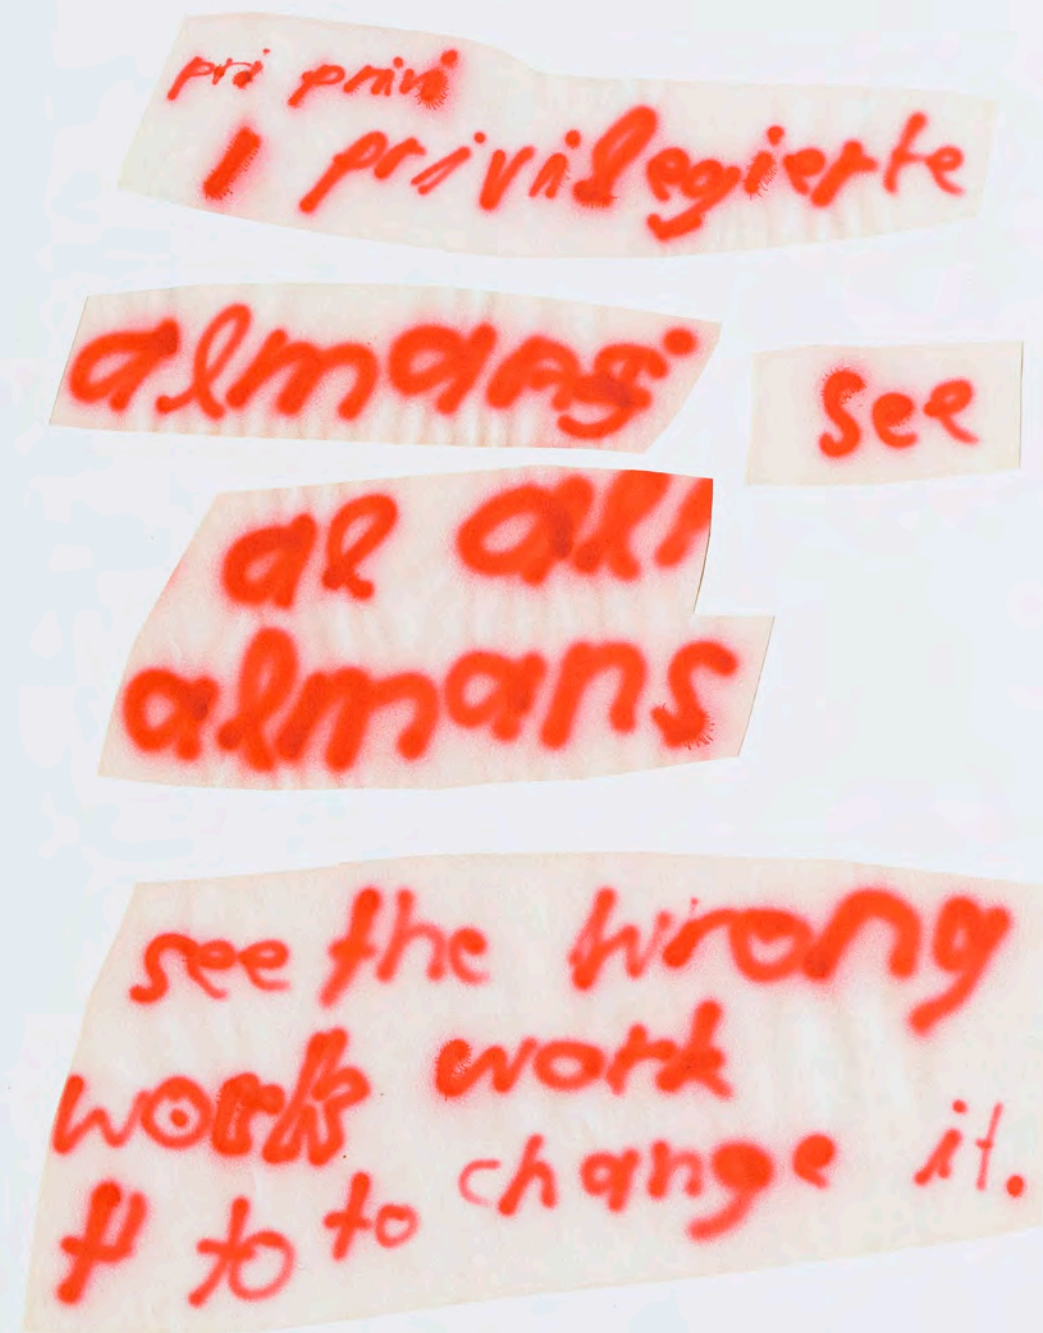 pri privi
privilegierte
almans
see
al al
almans
see the wrong
work work
t to to change it.